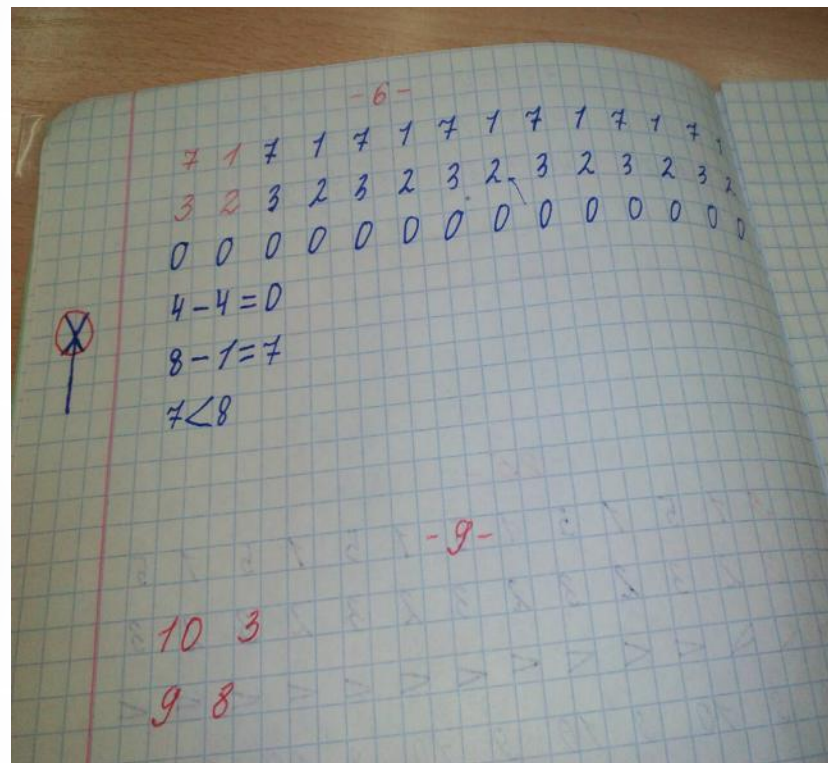 -6-
7 1 7 1 7 1 7 1 7 1 7 1 7 1
3 2 3 2 3 2 3 2 3 2 3 2 3 2
0 0 0 0 0 0 0 0 0 0 0 0 0 0
4-4=0
8-1=7
7<8
-9-
10 3
9 8